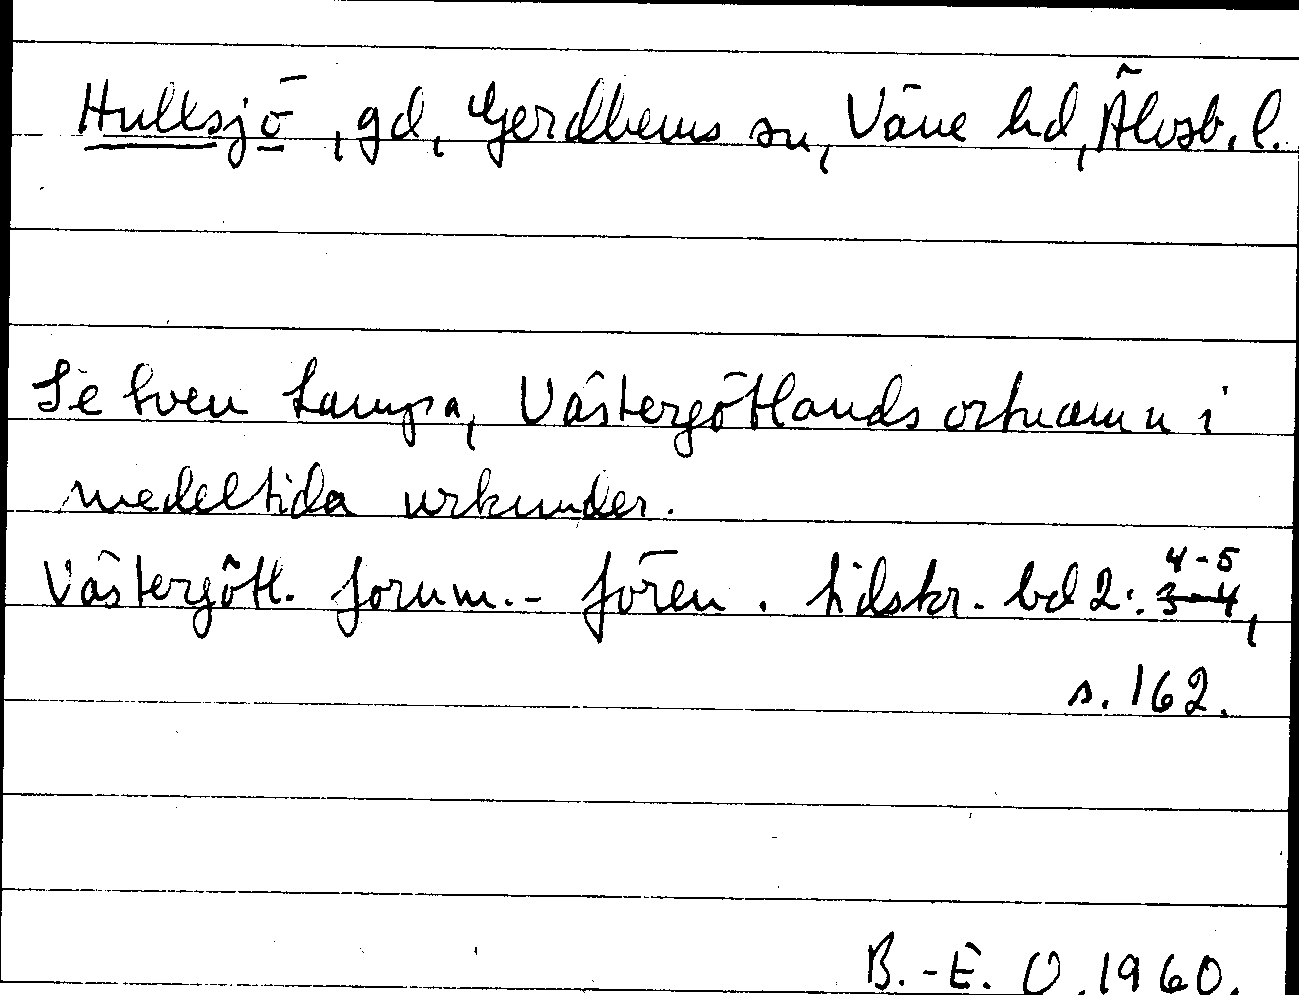 Hullsjö, gd, Gerdhems sn, Väne hd, Älvsb. l.
Se Sven Lampa, Västergötlands ortnamn i
medeltida urkunder.
Västergötl. fornm.- fören. tidskr. bd 2: 3-4, 4-5
s. 162.
B.-E. O. 1960.